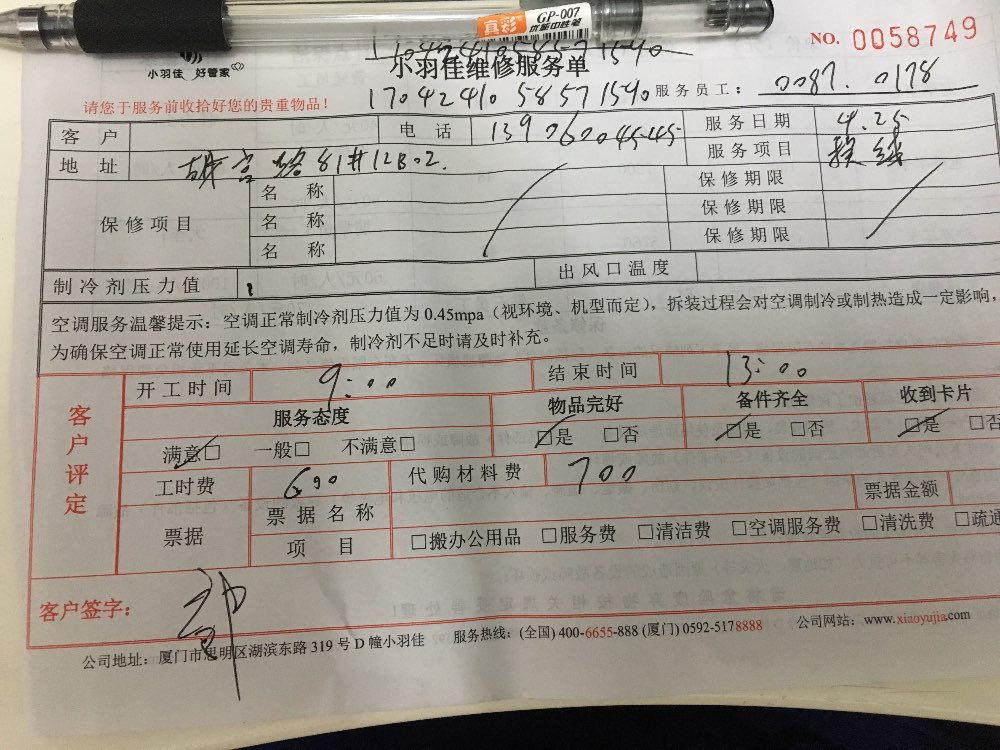 真彩 GP-007
优能中性笔
NO. 0058749
小羽佳 好管家
小羽佳维修服务单
请您于服务前收拾好您的贵重物品！
1704241058571540 服务员工： 0087. 0178
客 户 电 话 13906204545 服务日期 4.25
地 址 81#12B02. 服务项目 换线
保修项目 名 称 保修期限
名 称 保修期限
名 称 保修期限
制冷剂压力值 ： 出风口温度
空调服务温馨提示：空调正常制冷剂压力值为 0.45mpa（视环境、机型而定），拆装过程会对空调制冷或制热造成一定影响，
为确保空调正常使用延长空调寿命，制冷剂不足时请及时补充。
客户评定
开工时间 9:00 结束时间 13:00
服务态度 物品完好 备件齐全 收到卡片
满意□ 一般□ 不满意□ □是 □否 □是 □否 □是 □否
工时费 600 代购材料费 700 票据金额
票据 票 据 名 称
项 目 □搬办公用品 □服务费 □清洁费 □空调服务费 □清洗费 □疏通
客户签字：
公司地址：厦门市思明区湖滨东路 319 号 D 幢小羽佳 服务热线：(全国) 400-6655-888 (厦门) 0592-5178888 公司网站：www.xiaoyujia.com